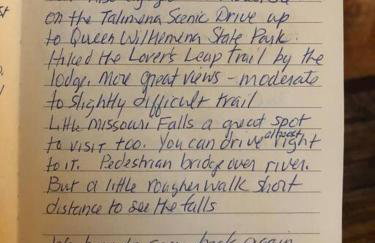 on the Talimena Scenic Drive up
to Queen Wilhemena State Park.
Hiked the Lover's Leap Trail by the
lodge. More great views - moderate
to slightly difficult trail
Little Missouri Falls a great spot
to visit too. You can drive almost right
to it. Pedestrian bridge over river.
But a little rougher walk short
distance to see the falls
back again